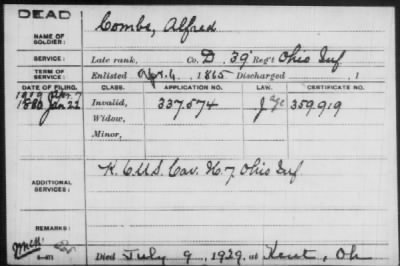 DEAD
NAME OF SOLDIER: Combs, Alfred
SERVICE: Late rank, Co. D, 39" Reg't Ohio Inf
TERM OF SERVICE: Enlisted Apr. 6, 1865 Discharged , 1
DATE OF FILING. CLASS. APPLICATION NO. LAW. CERTIFICATE NO.
1880 Jan 22 Invalid, 337.574 359.919
Widow,
Minor,
ADDITIONAL SERVICES: K. 6 U.S. Cav. H. 7 Ohio Inf
REMARKS:
Died July 9, 1929, at Kent, Oh